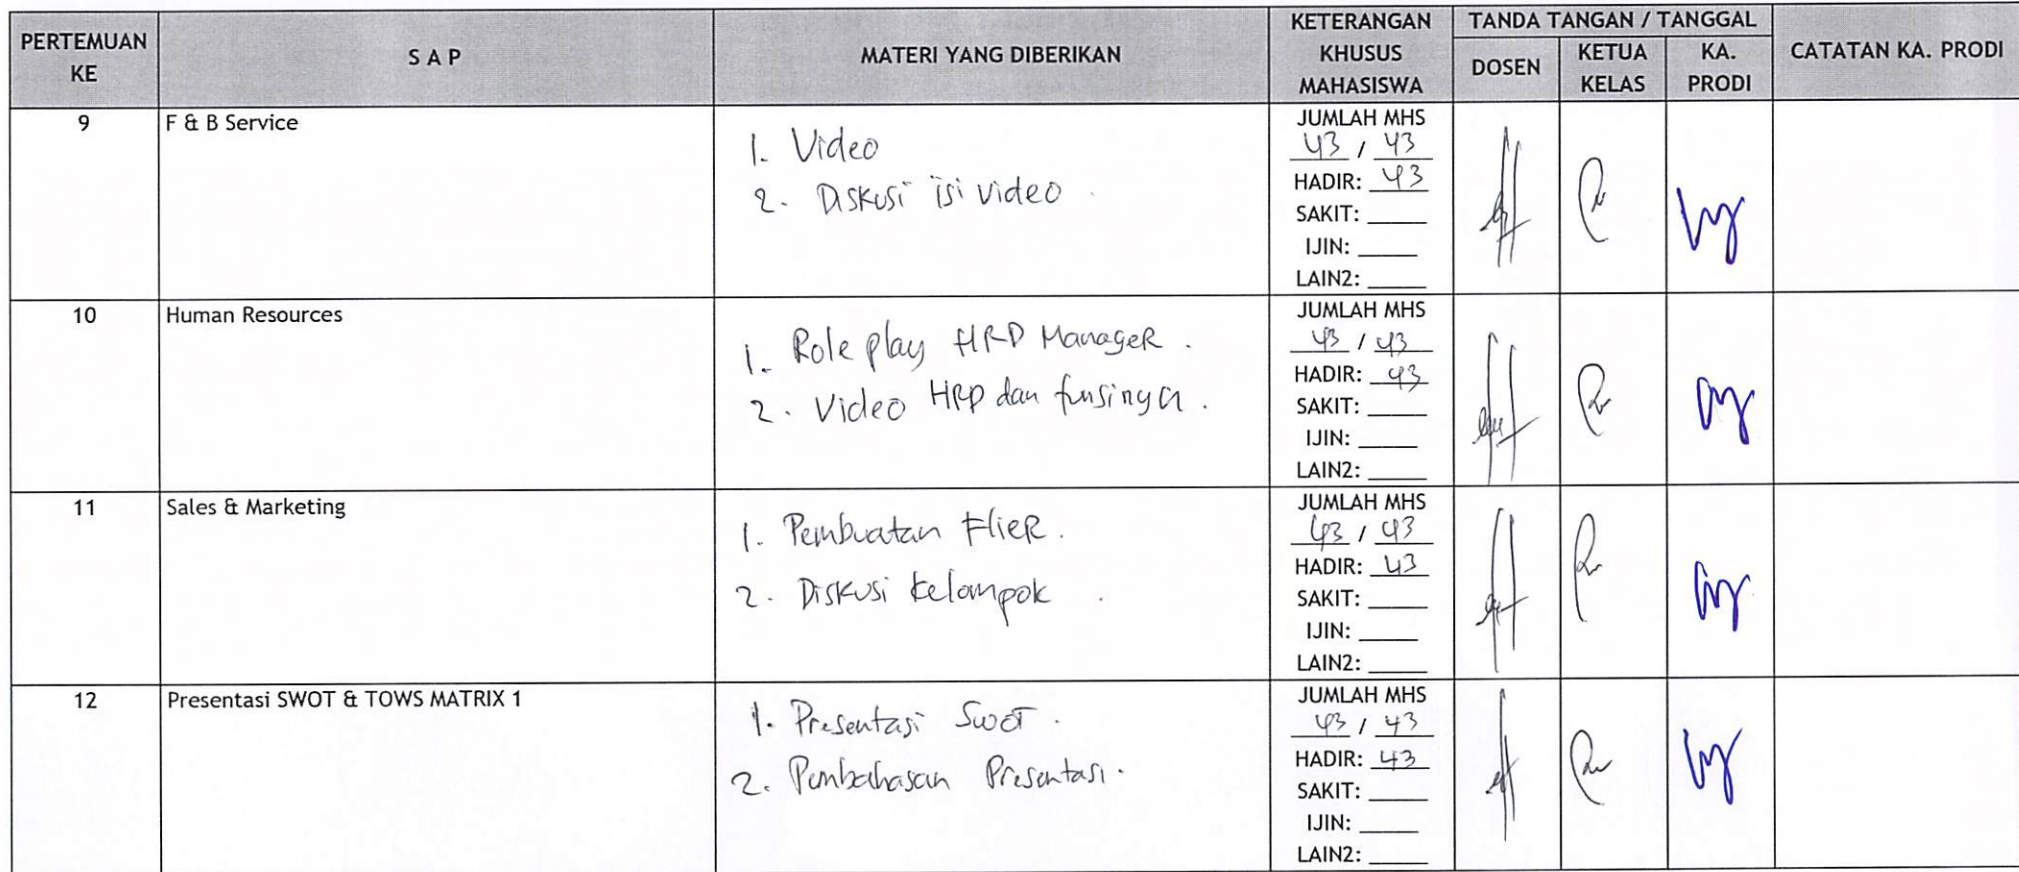 PERTEMUAN KE
S A P
MATERI YANG DIBERIKAN
KETERANGAN KHUSUS MAHASISWA
TANDA TANGAN / TANGGAL
DOSEN
KETUA KELAS
KA. PRODI
CATATAN KA. PRODI
9
F & B Service
1. Video
2. Diskusi isi video.
JUMLAH MHS
43 / 43
HADIR: 43
SAKIT:
IJIN:
LAIN2:
10
Human Resources
1. Role play HRD Manager.
2. Video HRD dan funsinya.
JUMLAH MHS
43 / 43
HADIR: 43
SAKIT:
IJIN:
LAIN2:
11
Sales & Marketing
1. Pembuatan Flier.
2. Diskusi kelompok.
JUMLAH MHS
43 / 43
HADIR: 43
SAKIT:
IJIN:
LAIN2:
12
Presentasi SWOT & TOWS MATRIX 1
1. Presentasi SWOT.
2. Pembahasan Presentasi.
JUMLAH MHS
43 / 43
HADIR: 43
SAKIT:
IJIN:
LAIN2: